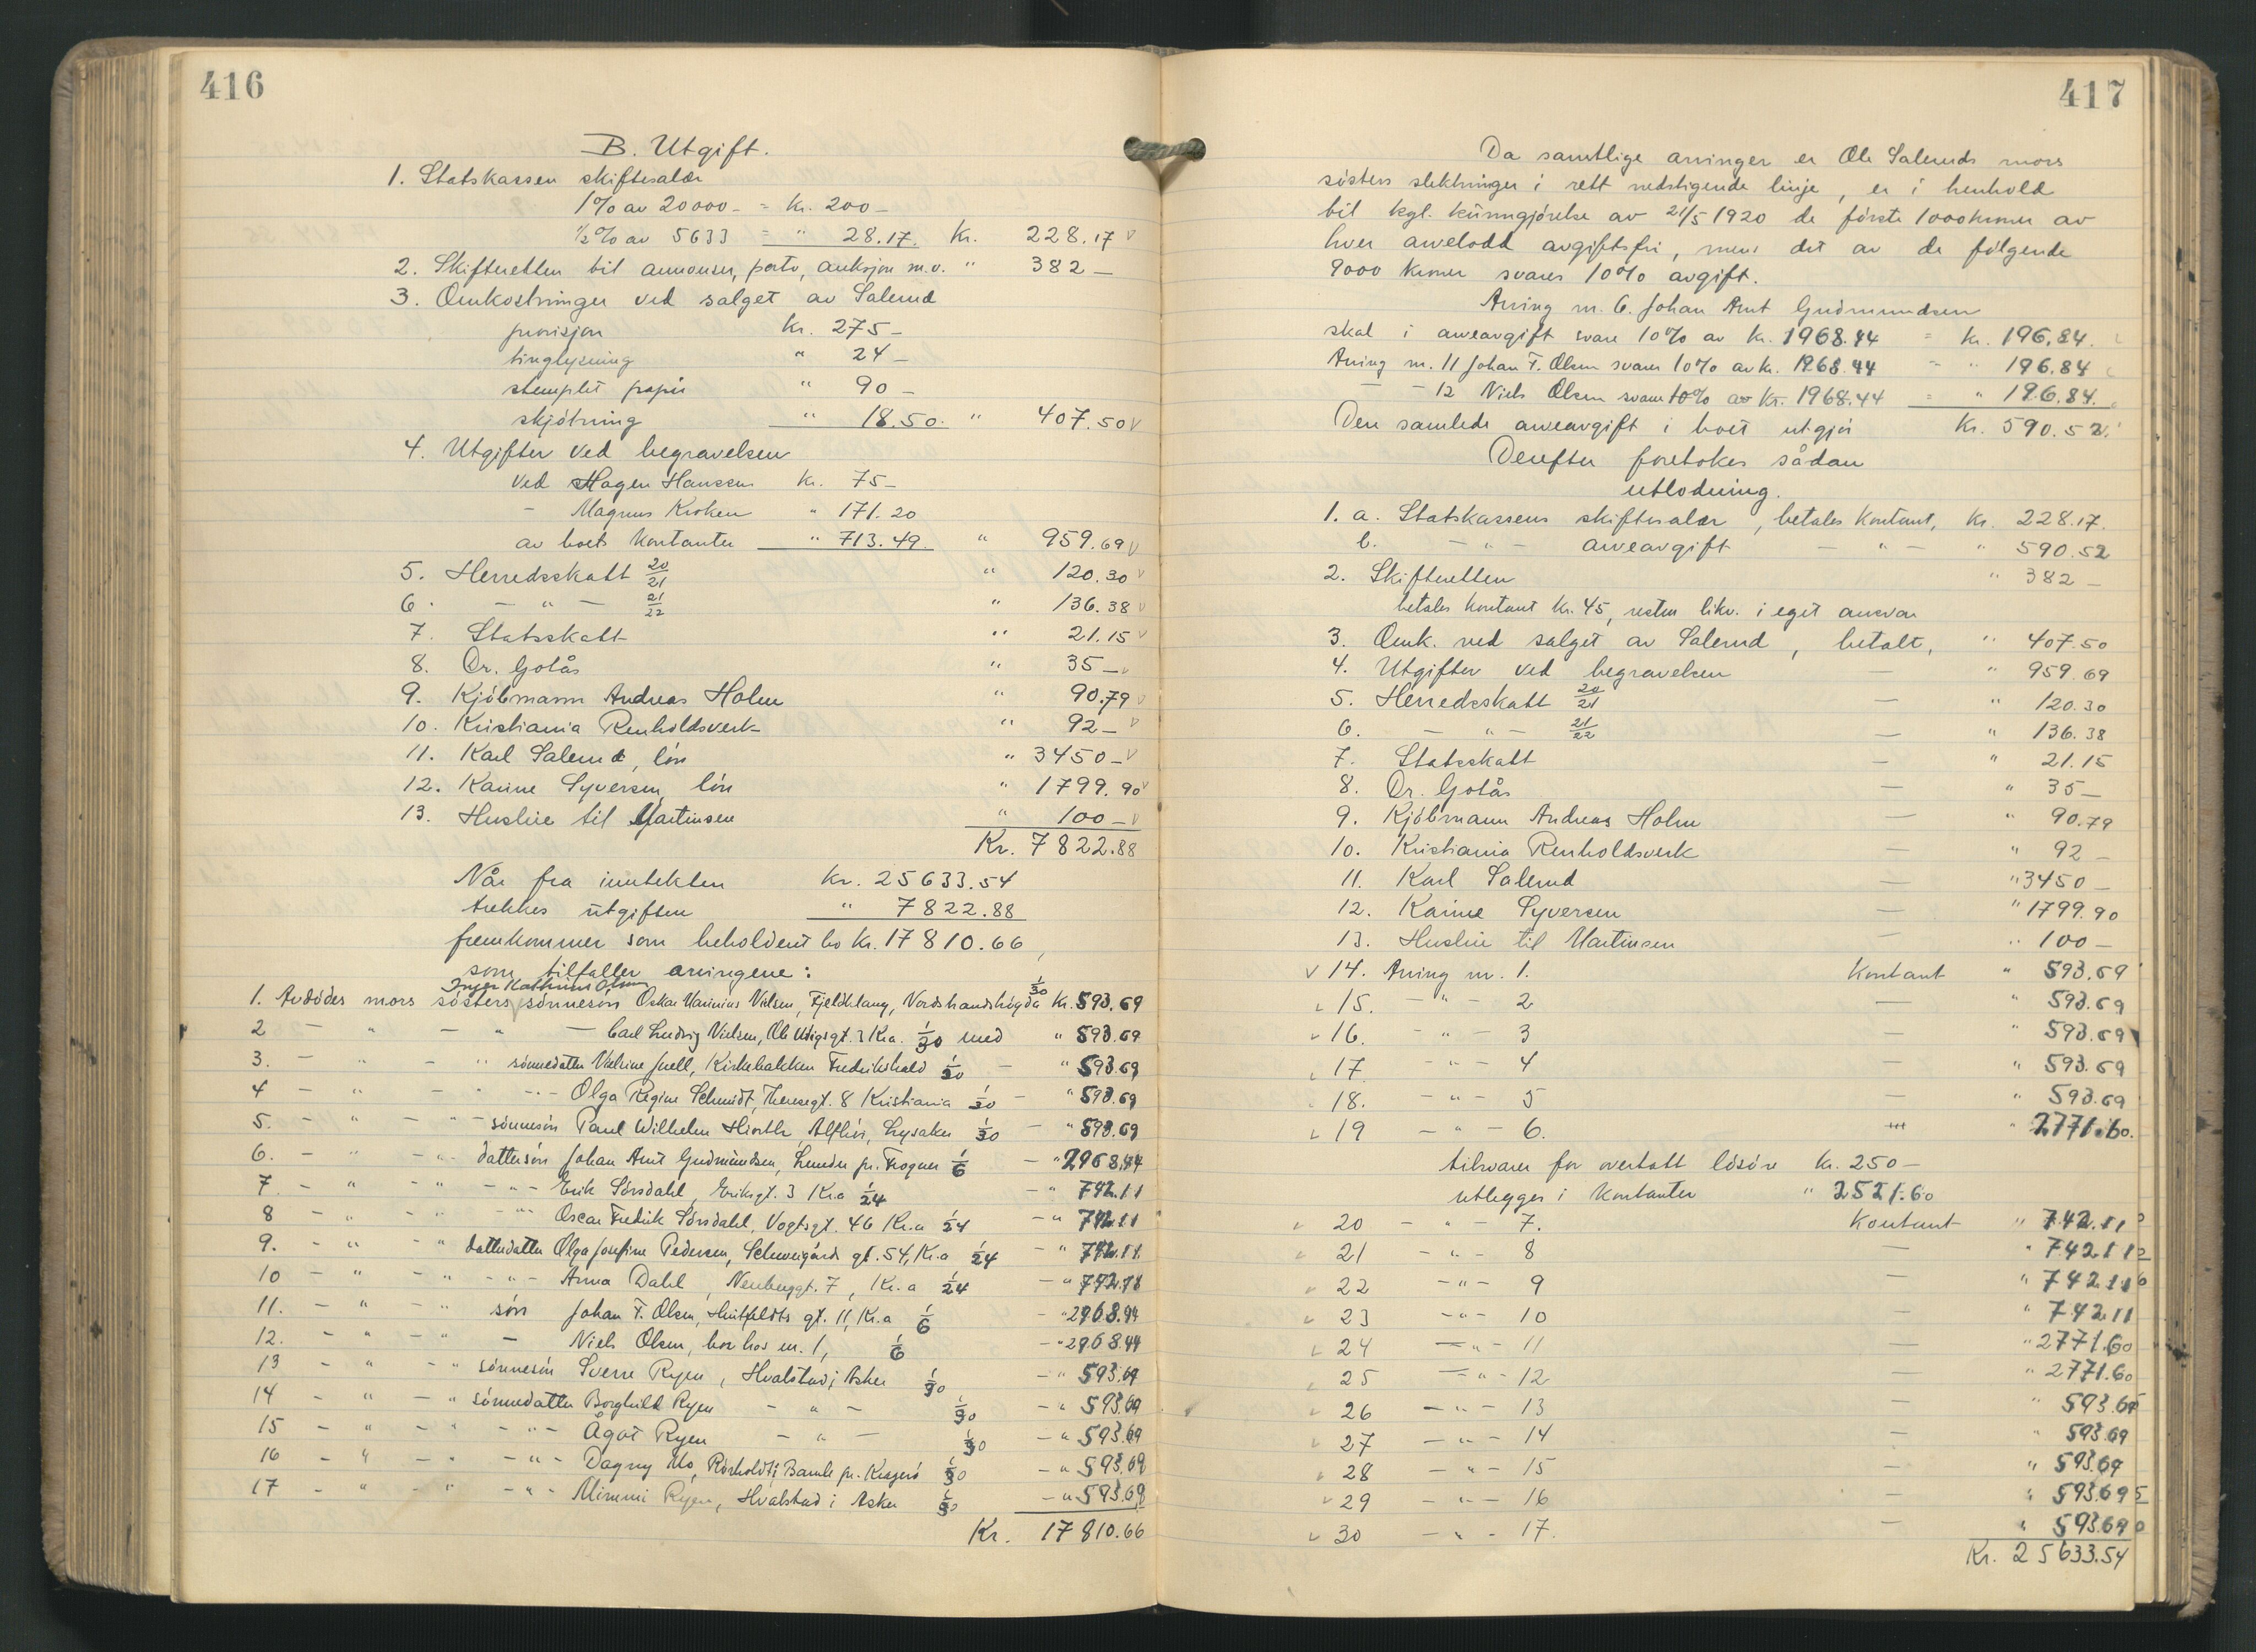 416
B. Utgift.
1. Statskassen skiftesalær
1% av 20000 - = Kr. 200 -
½% av 5633 = " 28.17. Kr. 228.17
2. Skifteretten til annonser, porto, auksjon m.v. " 382 -
3. Omkostninger ved salget av Salerud
provisjon Kr. 275 -
tinglysning " 24 -
stemplet papir " 90 -
skjötning " 18.50. " 407.50
4. Utgifter ved begravelsen
ved Hagen Hanssen Kr. 75 -
- Magnus Kroken " 171.20
av boets kontanter " 713.49. " 959.69
5. Herredsskatt 20/21 " 120.30
6. - " - 21/22 " 136.38
7. Statsskatt " 21.15
8. Dr. Gotås " 35 -
9. Kjöbmann Andreas Holm " 90.79
10. Kristiania Renholdsverk " 92 -
11. Karl Salerud, lön " 3450 -
12. Karine Syversen, lön " 1799.90
13. Husleie til Martinsen " 100 -
Kr. 7822.88
Når fra inntekten Kr. 25633.54
trekkes utgiften " 7822.88
fremkommer som beholdent bo Kr. 17810.66,
som tilfaller arvingene:
Inger Kathrine Olsens
1. Avdödes mors sösters sönnesön Oskar Marinius Nielsen, Fjeldtlang, Nordstrandshögda 1/30 Kr. 593.69
2 - " - " - Carl Ludvig Nielsen, Ole Vigsgt. 3 Kr.a. 1/30 med " 593.69
3. - " - " sönnedatter Valrine Juell, Kirkebakken Fredrikshald 1/30 - " 593.69
4 - " - " - " - Olga Regine Schmidt, Theresegt. 8 Kristiania 1/30 - " 593.69
5. - " - " - sönnesön Paul Wilhelm Hiorth, Alfhöi, Lysaker 1/30 - " 593.69
6. - " - " - dattersön Johan Arnt Gudmundsen, Lunder pr. Frogner 1/6 - " 2968.44
7. - " - " - " - Erik Sörsdahl, Eriksgt. 3 Kr.a 1/24 - " 742.11
8 - " - " - " - Oscar Fredrik Sörsdahl, Vogtsgt. 46 Kr.a 1/24 - " 742.11
9. - " - " datterdatter Olga Josefine Pedersen, Schweigårds gt. 54, Kr.a 1/24 - " 742.11
10 - " - " - " - Anna Dahl, Neubergt. 7, Kr.a 1/24 - " 742.11
11. - " - " sön Johan F. Olsen, Huitfeldts gt. 11, Kr.a 1/6 - " 2968.44
12. - " - " - Niels Olsen, bor hos nr. 1, 1/6 - " 2968.44
13 - " - " sönnesön Sverre Ryen, Hvalstad i Asker 1/30 - " 593.69
14 - " - " sönnedatter Borghild Ryen - " - 1/30 - " 593.69
15 - " - " - " - Ågot Ryen - " - 1/30 - " 593.69
16 - " - " - " - Dagny Mo, Rörholdt i Bamle pr. Kragerö 1/30 - " 593.69
17 - " - " - " - Mimmi Ryen, Hvalstad i Asker 1/30 - " 593.69
Kr. 17810.66
417
Da samtlige arvinger er Ole Saleruds mors
sösters slektninger i rett nedstigende linje, er i henhold
til kgl. kunngjörelse av 21/5 1920 de förste 1000 kroner av
hver arvelodd avgiftsfri, mens det av de fölgende
9000 kroner svares 10% avgift.
Arving nr. 6. Johan Arnt Gudmundsen
skal i arveavgift svare 10% av kr. 1968.44 = Kr. 196.84.
Arving nr. 11 Johan F. Olsen svarer 10% av kr. 1968.44 = " 196.84
- - 12 Niels Olsen svarer 10% av kr. 1968.44 = " 196.84.
Den samlede arveavgift i boet utgjör Kr. 590.52.
Derefter foretokes sådan
utlodning.
1. a. Statskassens skiftesalær, betales kontant, Kr. 228.17.
b. - " - arveavgift - " - " 590.52
2. Skifteretten " 382 -
betales kontant kr. 45, resten likv. i eget ansvar
3. Omk. ved salget av Salerud, betalt, " 407.50
4. Utgifter ved begravelsen - " 959.69
5. Herredsskatt 20/21 - " 120.30
6. - " - 21/22 - " 136.38
7. Statsskatt - " 21.15
8. Dr. Gotås - " 35 -
9. Kjöbmann Andreas Holm - " 90.79
10. Kristiania Renholdsverk - " 92 -
11. Karl Salerud - " 3450 -
12. Karine Syversen - " 1799.90
13. Husleie til Martinsen - " 100 -
14. Arving nr. 1. Kontant " 593.69
15. - " - 2 - " 593.69
16. - " - 3 - " 593.69
17 - " - 4 - " 593.69
18. - " - 5 - " 593.69
19 - " - 6. " 2771.60.
tilsvarer for overtatt lösöre kr. 250 -
utlegges i kontanter " 2521.60
20 - " - 7. Kontant " 742.11
21 - " - 8 - " 742.11
22 - " - 9 - " 742.11
23 - " - 10 - " 742.11
24 - " - 11 - " 2771.60
25 - " - 12 - " 2771.60
26 - " - 13 - " 593.69
27 - " - 14 - " 593.69
28 - " - 15 - " 593.69
29 - " - 16 - " 593.69
30 - " - 17. - " 593.69
Kr. 25633.54